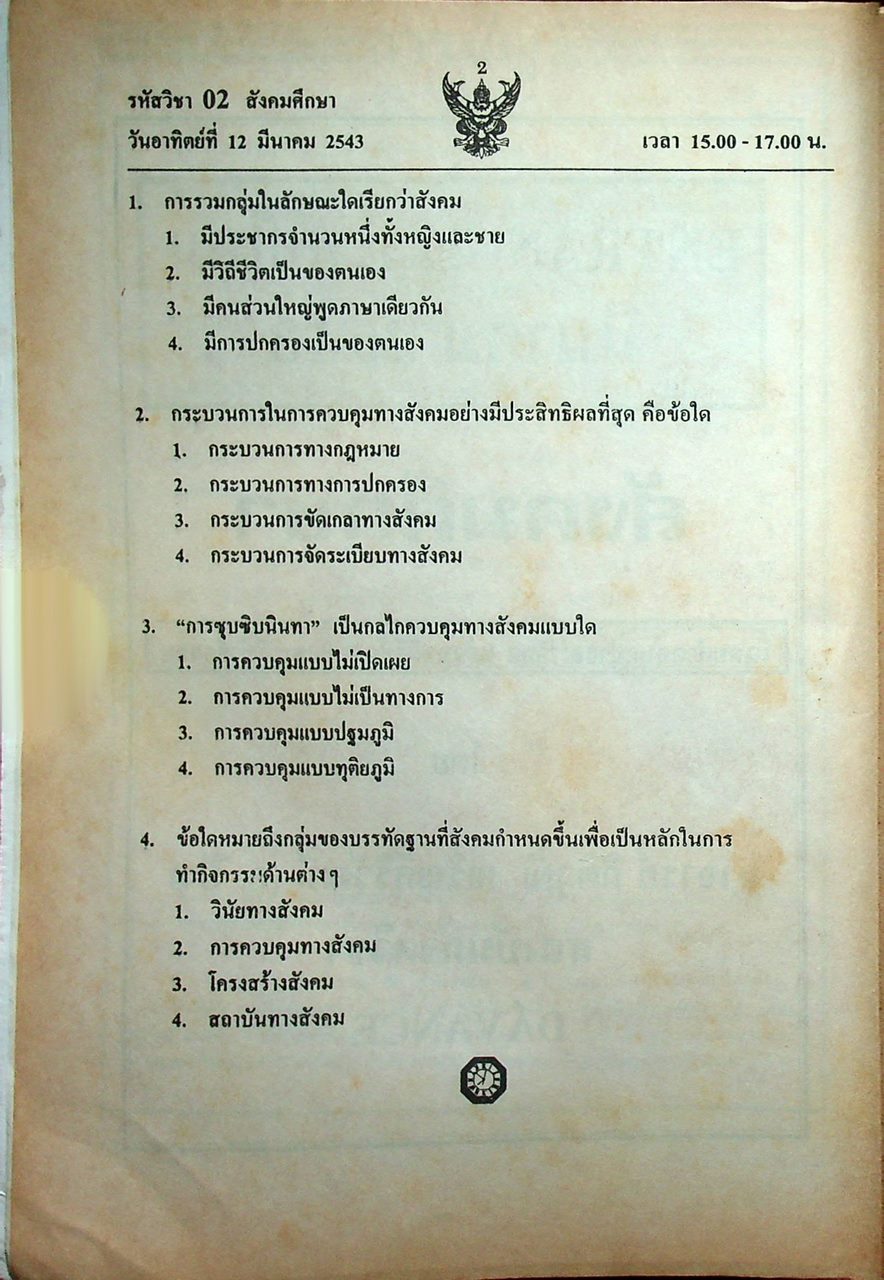 2
รหัสวิชา 02 สังคมศึกษา
วันอาทิตย์ที่ 12 มีนาคม 2543 เวลา 15.00 - 17.00 น.
1. การรวมกลุ่มในลักษณะใดเรียกว่าสังคม
1. มีประชากรจำนวนหนึ่งทั้งหญิงและชาย
2. มีวิถีชีวิตเป็นของตนเอง
3. มีคนส่วนใหญ่พูดภาษาเดียวกัน
4. มีการปกครองเป็นของตนเอง
2. กระบวนการในการควบคุมทางสังคมอย่างมีประสิทธิผลที่สุด คือข้อใด
1. กระบวนการทางกฎหมาย
2. กระบวนการทางการปกครอง
3. กระบวนการขัดเกลาทางสังคม
4. กระบวนการจัดระเบียบทางสังคม
3. “การซุบซิบนินทา” เป็นกลไกควบคุมทางสังคมแบบใด
1. การควบคุมแบบไม่เปิดเผย
2. การควบคุมแบบไม่เป็นทางการ
3. การควบคุมแบบปฐมภูมิ
4. การควบคุมแบบทุติยภูมิ
4. ข้อใดหมายถึงกลุ่มของบรรทัดฐานที่สังคมกำหนดขึ้นเพื่อเป็นหลักในการ
ทำกิจกรรมด้านต่าง ๆ
1. วินัยทางสังคม
2. การควบคุมทางสังคม
3. โครงสร้างสังคม
4. สถาบันทางสังคม